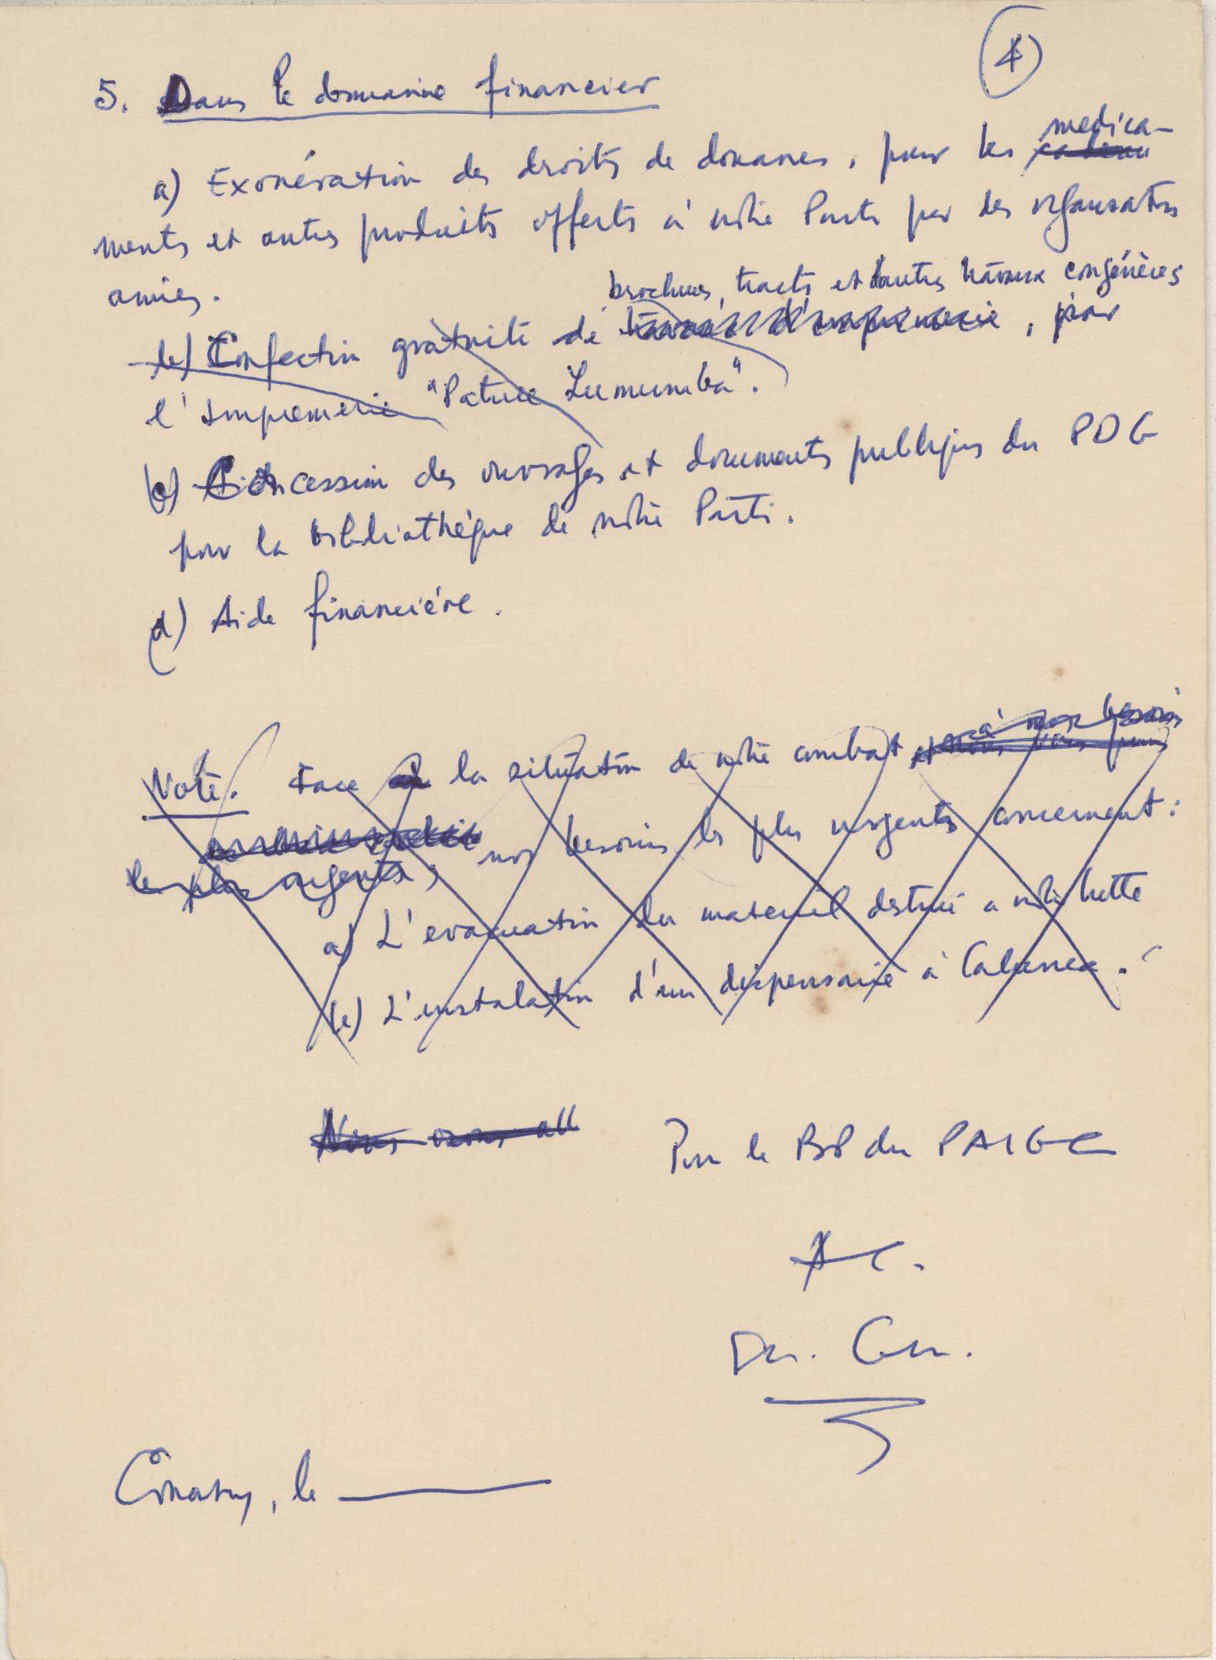 4
5. Dans le domaine financier
a) Exonération des droits de douanes, pour les medica-
ments et autres produits offerts à notre Parti par des organisations
amies.
brochures, tracts et d'autres travaux congénères
b) Confection gratuite de travaux d'imprimerie, par
l'Imprimerie "Patrice Lumumba".
c) Concession des ouvrages et documents publiques du PDG
pour la bibliothèque de notre Parti.
d) Aide financière.
à nos besoins
Note. Face à la situation de notre combat et
les plus urgents, nos besoins les plus urgents concernent:
a) L'evacuation du materiel destiné a notre lutte
b) L'instalation d'un dispensaire à
Nous avons all
Pour le BP du PAIGC
AC.
Conakry, le